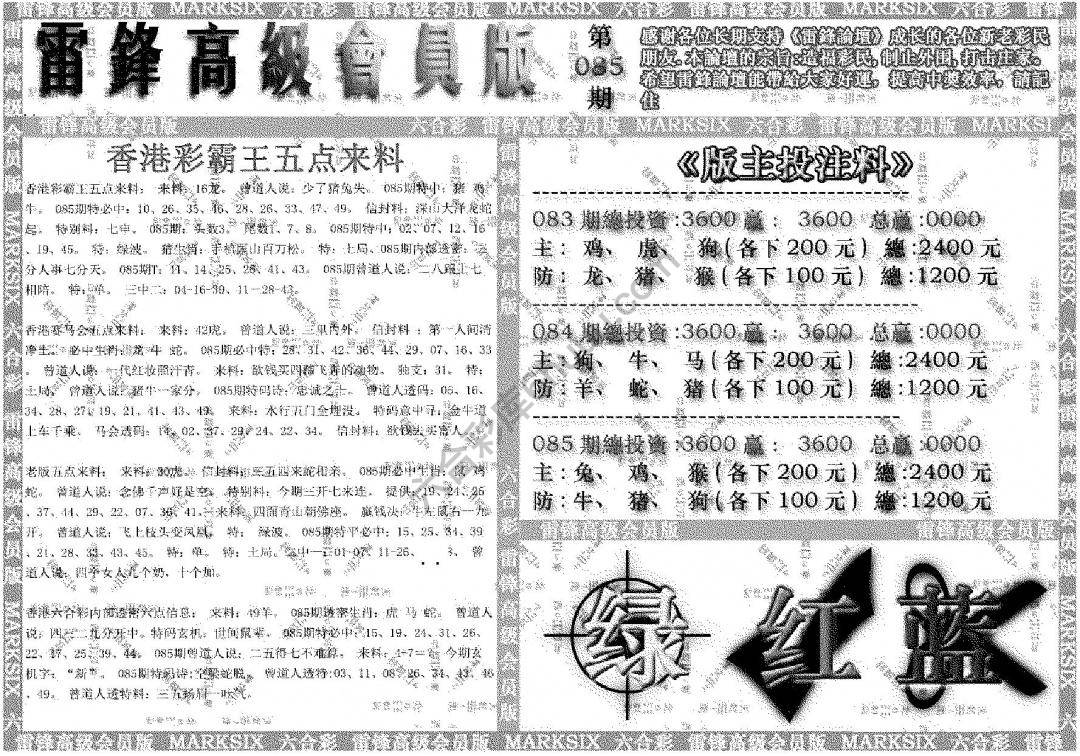 雷鋒高級會員版
第
085
期
感謝各位长期支持《雷鋒論壇》成长的各位新老彩民
朋友.本論壇的宗旨:造福彩民,制止外围,打击庄家。
希望雷鋒論壇能帶給大家好運，提高中獎效率，請記
住
六合彩 雷锋高级会员版 MARKSIX 六合彩 雷锋高级会员版
香港彩霸王五点来料
香港彩霸王五点来料： 来料：16龙。 曾道人说：少了猪兔头。 085期特小：猪 鸡
牛。 085期特必中：10、26、35、46、28、26、33、47、49。 信封料：深山大泽龙蛇
起。 特别料：七中。 085期：头数3。 尾数1、7、8。 085期特中：02、07、12、16
、19、45。 特：绿波。 猪生肖：手机医山百万松。 特：土局、085期内部透密：三
分人事七分天。 085期T：11、14、25、26、41、43。 085期曾道人说：二八蹤上七
相陪。 特：单。 三中二：04-16-39、11-28-43。
香港赛马会五点来料： 来料：42虎。 曾道人说：三里内外。 信封料：第一人间清
净生。 必中生肖：龙 牛 蛇。 085期必中特：28、31、42、36、44、29、07、16、33
。 曾道人说：一代红妆照汗青。 来料：欲钱买四蹄飞奔的动物。 独支：31。 特：
土局。 曾道人说：猪牛一家分。 085期特码诗：忠诚之士。 曾道人透码：05、16、
34、28、27、19、21、41、43、49。 来料：水行五门金埋没。 特码意中寻：金牛道
上车千乘。 马会透码：14、02、37、29、24、22、34。 信封料：欲钱去买富人。
老版五点来料： 来料：30虎。 信封料：三五四来蛇相亲。 085期必中生肖： 鸡
蛇。 曾道人说：念佛千声好是空。 特别料：今期三开七来连。 提供：19、24、25
、37、44、29、22、07、36、41。 来料：四面青山朝佛座。 赢钱决：牛左鼠右一九
开。 曾道人说：飞上枝头变凤凰。 特： 绿波。 085期特平必中：15、25、34、39
、21、28、33、43、45。 特：单。 特：土局。 三中一：01-07、11-26、 3。 曾
道人说：四个女人几个奶，十个加。
香港六合彩内部透密六点信息： 来料：49羊。 085期透密生肖：虎 马 蛇。 曾道人
说：四三二九分开中。特码玄机：世间鼠辈。 085期特必中：15、19、24、31、26、
22、17、25、39、44。 085期曾道人说：二五得七不难算。 来料：4-7=？ 今期玄
机字：“新”。 085期特码诗：空梁蛇脱。 曾道人透特:03、11、08、26、34、43、46
、49。 曾道人透特料：三五扬眉一吐气。
《版主投注料》
083 期總投資:3600 赢: 3600 总赢:0000
主: 鸡、 虎、 狗(各下 200 元) 總:2400 元
防: 龙、 猪、 猴(各下 100 元) 總:1200 元
084 期總投資:3600 赢: 3600 总赢:0000
主: 狗、 牛、 马(各下 200 元) 總:2400 元
防: 羊、 蛇、 猪(各下 100 元) 總:1200 元
085 期總投資:3600 赢: 3600 总赢:0000
主: 兔、 鸡、 猴(各下 200 元) 總:2400 元
防: 牛、 猪、 狗(各下 100 元) 總:1200 元
雷锋高级会员版
绿 红 蓝
雷锋高级会员版 MARKSIX 六合彩 雷锋高级会员版 MARKSIX 六合彩 雷锋高级会员版 MARKSIX 六合彩